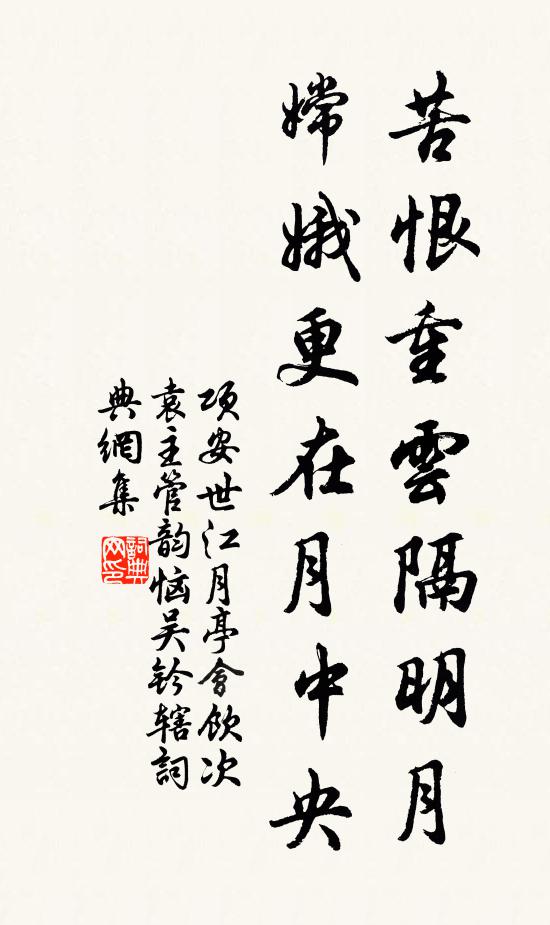 苦恨重雲隔明月
嫦娥更在月中央
項安世江月亭會飲次
袁主管韵恼吴鈐轄詞
典網集
詞典
网印